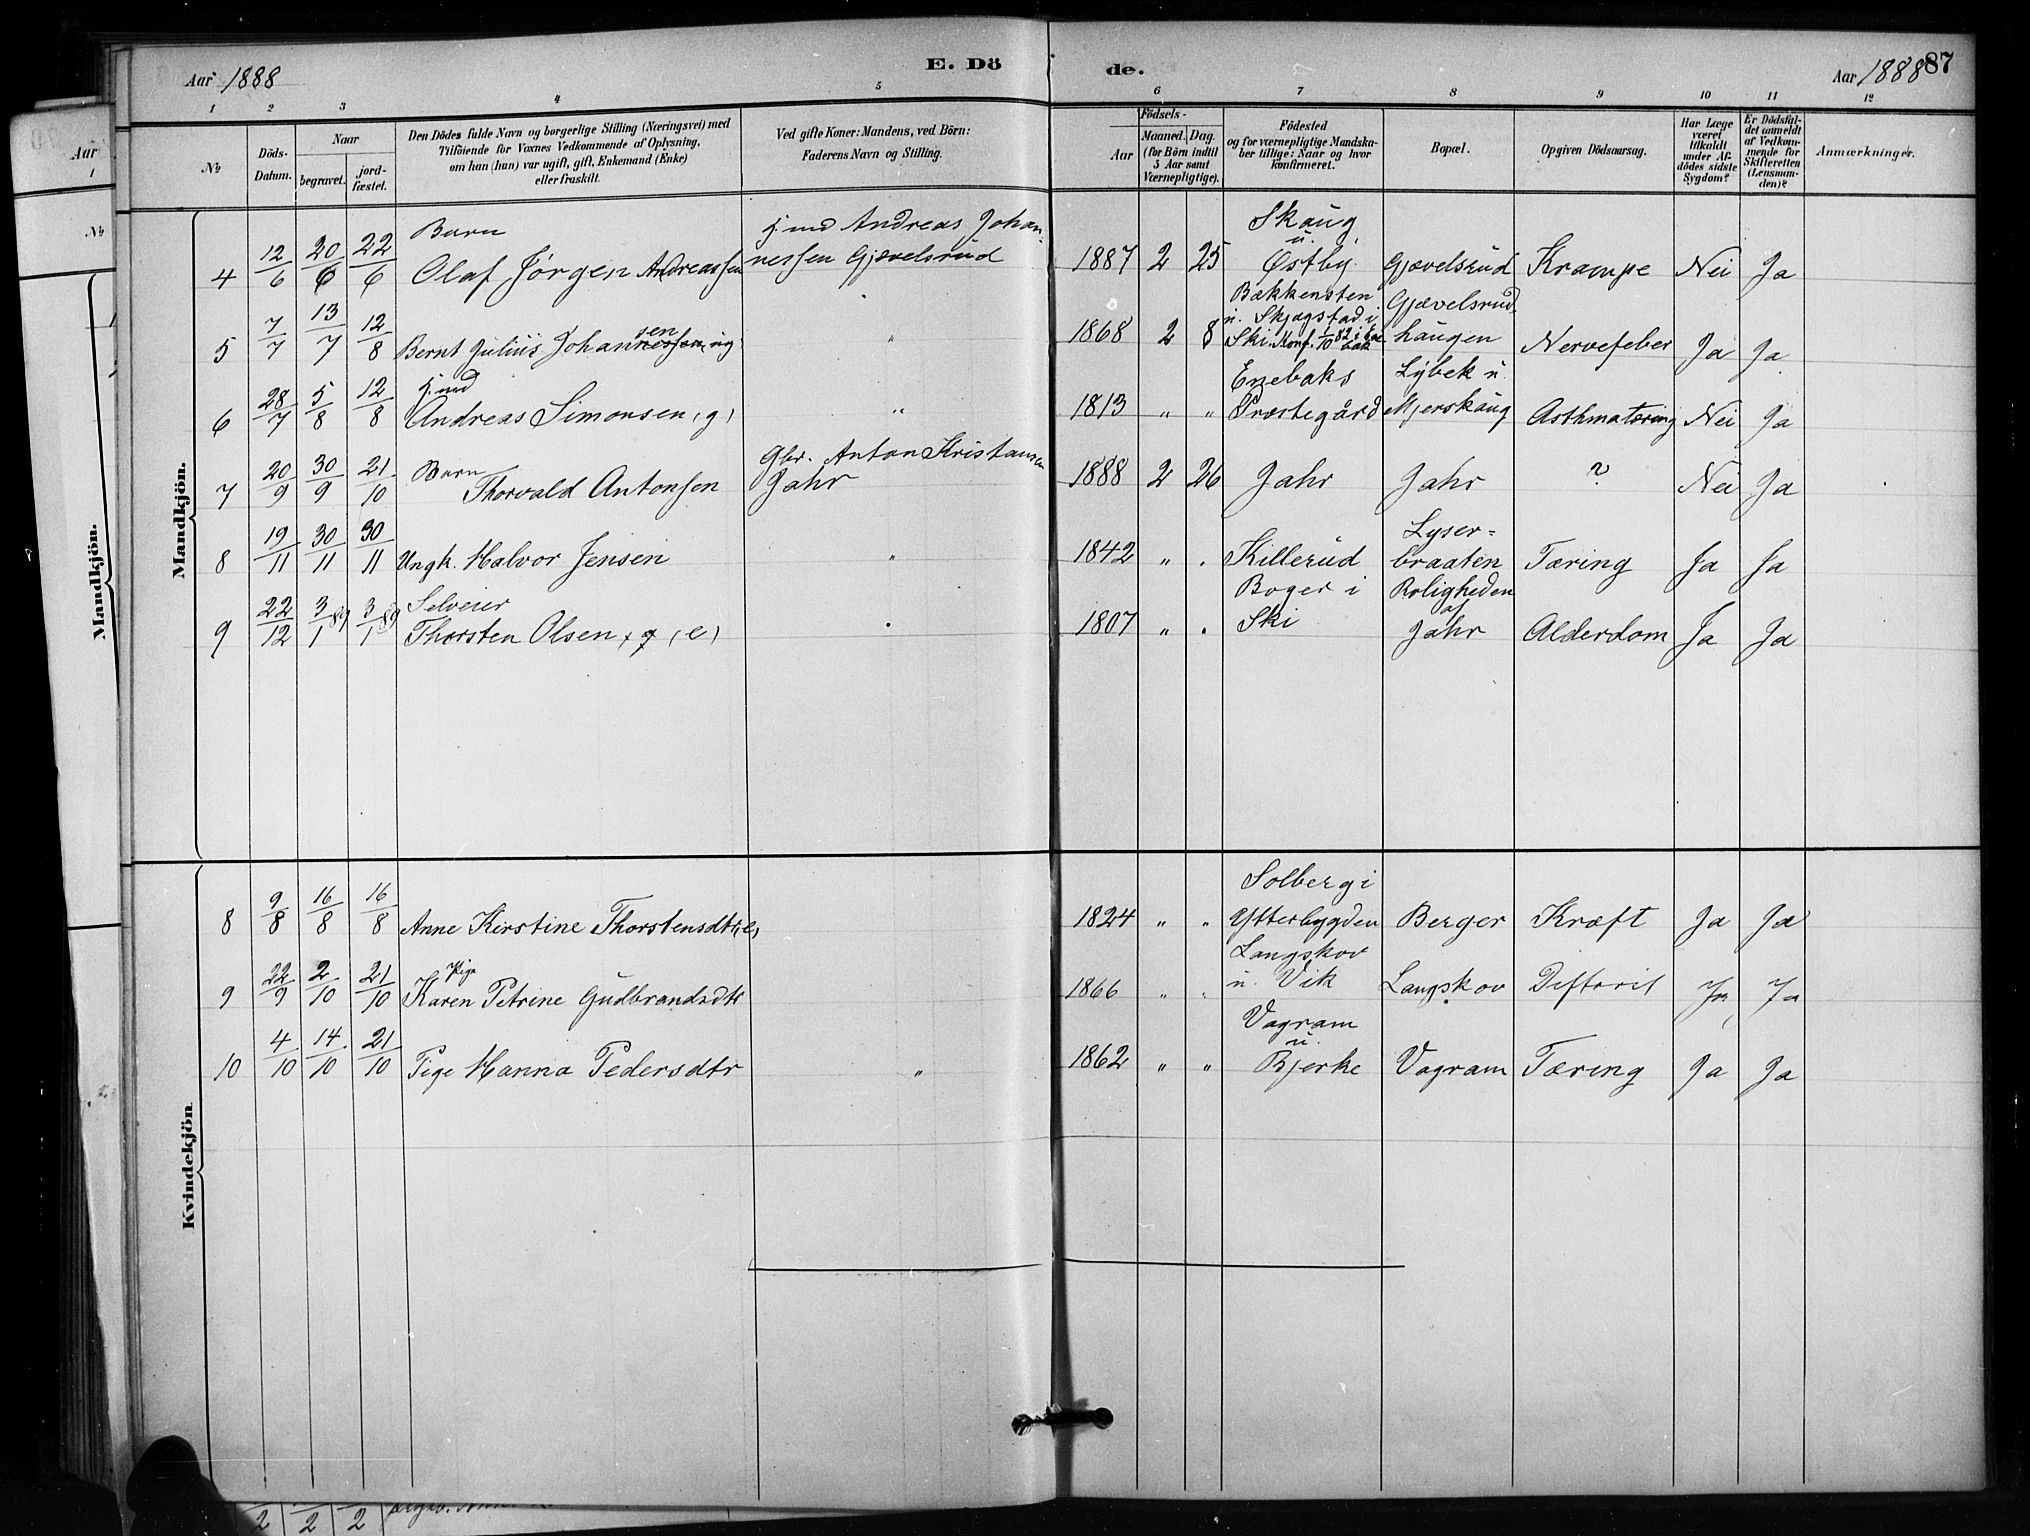 Aar 1888
E. Dö
de.
Aar 1888
87
1 2 3 4 5 6 7 8 9 10 11 12
№
Döds-
Datum.
Naar
begravet.
jord-
fæstet.
Den Dödes fulde Navn og borgerlige Stilling (Næringsvei) med
Tilföiende for Voxnes Vedkommende af Oplysning,
om han (hun) var ugift, gift, Enkemand (Enke)
eller fraskilt.
Ved gifte Koner: Mandens, ved Börn:
Faderens Navn og Stilling.
Födsels-
Aar
Maaned. Dag.
(for Börn indtil
5 Aar samt
Værnepligtige).
Födested
og for værnepligtige Mandska-
ber tillige: Naar og hvor
konfirmeret.
Bopæl.
Opgiven Dödsaarsag.
Har Læge
været
tilkaldt
under Af-
dödes sidste
Sygdom?
Er Dödsfal-
det anmeldt
af Vedkom-
mende for
Skifteretten
(Lensman-
den)?
Anmærkninger.
Mandkjön.
4 12/6 20/6 22/6 Barn
Olaf Jørgen Andreassen
j. md Andreas Johan-
nessen Gjævelsrud
1887 2 25
Skaug
u.
Østby
Gjævelsrud Krampe Nei Ja
5 7/7 13/7 12/8 Bernt Julius Johannessen, ug
sen
" 1868 2 8
Bækkensten
u. Skjægstad i
Ski. Konf. 1/10 82 i Ene
bak
Gjævelsrud
haugen
Nervefeber Ja Ja
6 28/7 5/8 12/8 j. md
Andreas Simonsen, g,
" 1813 " "
Enebaks
Præstegård
Lybek u
Mjerskaug
Asthmatæring Nei Ja
7 20/9 30/9 21/10 Barn
Thorvald Antonsen
Gbr. Anton Kristansen
Jahr
1888 2 26 Jahr Jahr ? Nei Ja
8 19/11 30/11 30/11 Ungk. Halvor Jensen
" 1842 " " Killerud
Lyser-
braaten
Tæring Ja Ja
9 22/12 3/1 89 3/1 89 Selveier
Thorsten Olsen, g, e,
" 1807 " "
Boger i
Ski
Roligheden
af
Jahr
Alderdom Ja Ja
Kvindekjön
8 9/8 16/8 16/8 Anne Kirstine Thorstensdtr, e,
1824 " "
Solberg i
Ytterbygden
Berger Kræft Ja Ja
9 22/9 2/10 21/10 Pige
Karen Petrine Gudbrandsdtr
1866 " "
Langskov
u. Vik
Langskov Difterit Ja Ja
10 4/10 14/10 21/10 Pige Hanna Pedersdtr
" 1862 " "
Vagram
u.
Bjerke
Vagram Tæring Ja Ja
Aar
1
№
Mandkjön.